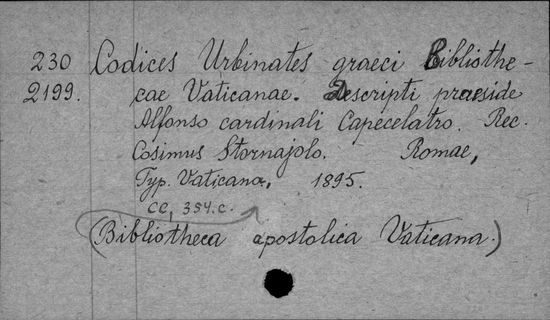 230 Codices Urbinates graeci Bibliothe-
2199. cae Vaticanae. Descripti praeside
Alfonso cardinali Capecelatro. Rec.
Cosimus Stornajolo. Romae,
Typ. Vaticana, 1895.
CC, 354.c.
(Bibliotheca apostolica Vaticana.)